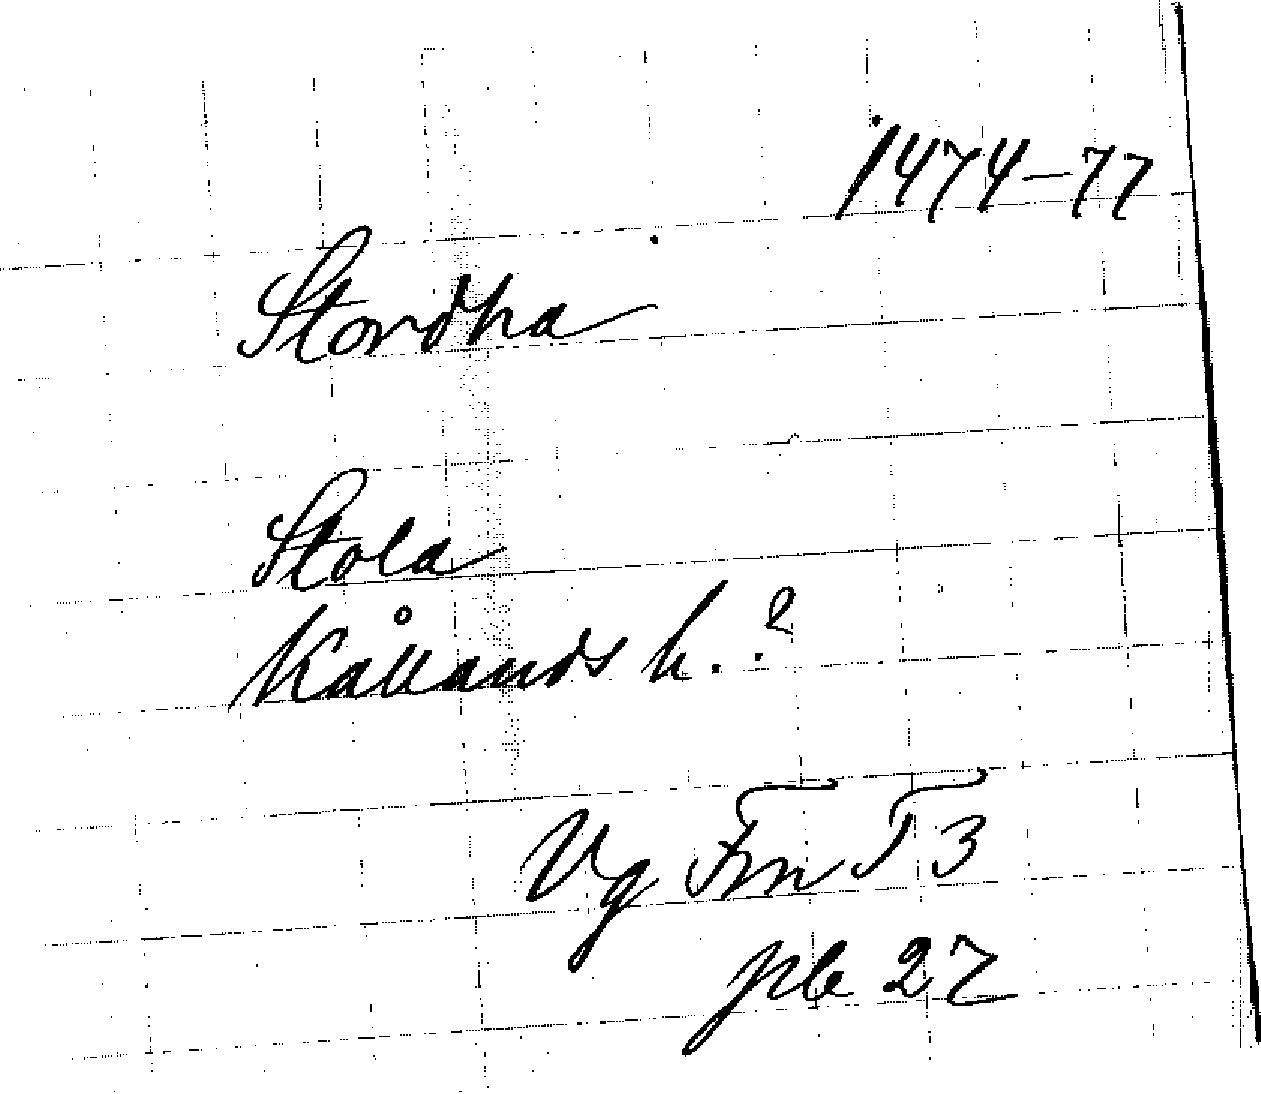 1474-77
Stordha
Stola
Kållands h. ?
Vg Frn T 3
plb 27